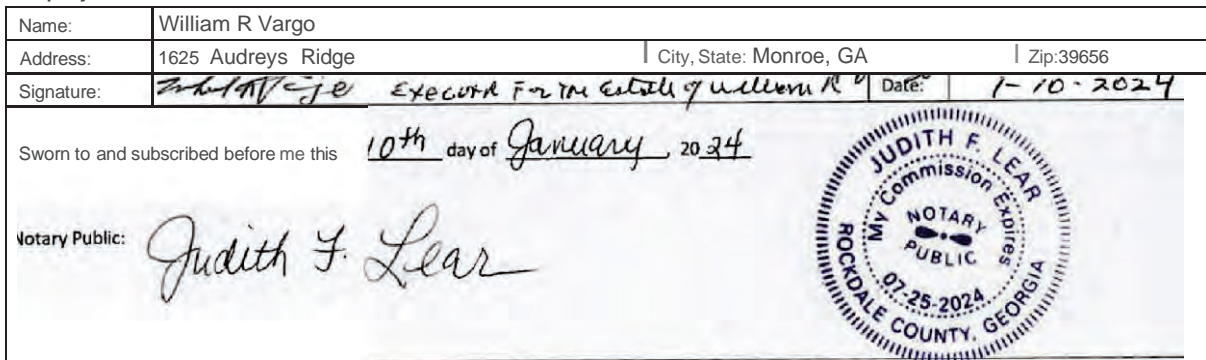 Name: William R Vargo
Address: 1625 Audreys Ridge City, State: Monroe, GA Zip:39656
Signature: Executor For The Estate of William R V Date: 1-10-2024
Sworn to and subscribed before me this 10th day of January, 2024
Notary Public: Judith F. Lear
JUDITH F. LEAR
My Commission Expires
NOTARY
PUBLIC
07-25-2024
ROCKDALE COUNTY, GEORGIA